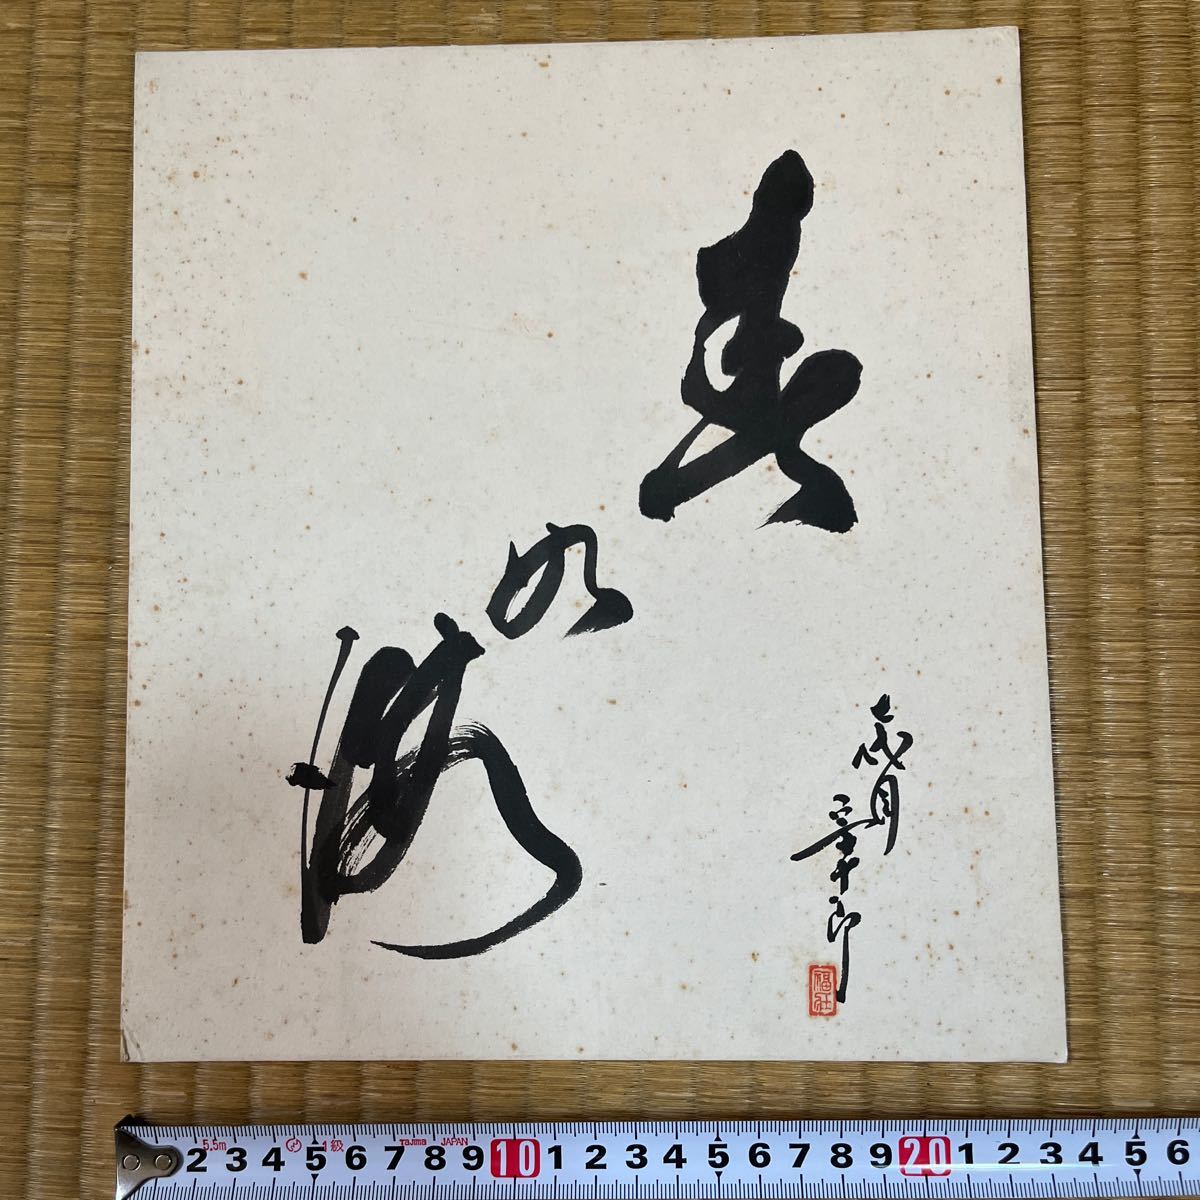 春
如
海
月
十郎
5.5m 1級 Tajima JAPAN
2 3 4 5 6 7 8 9 10 1 2 3 4 5 6 7 8 9 20 1 2 3 4 5 6